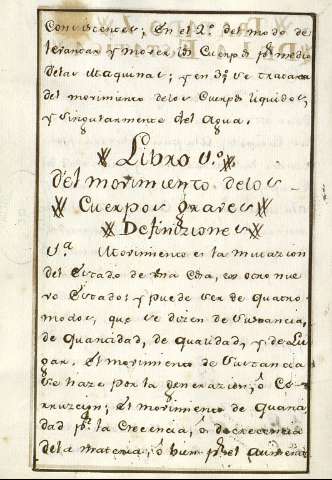 Consistencias; En el 2º. del modo de
levantar y mover los Cuerpos pr. medio
delas Maquinas; y en 3º. se tratara
del movimiento delos Cuerpos liquidos,
y singularmente del Agua.
Libro 1.º
del movimiento delos
Cuerpos graves
Definiziones
1.ª Movimiento es la mutacion
del Estado de una Cosa, en otro nue
vo Estado; y puede ser de quatro
modos, que se dizen de Sustancia,
de Quantidad, de qualidad, y de Lu
gar. El movimiento de Sustancia
se haze por la Generazion, ô Co-
rruzion; El movimiento de Quanti
dad pr. la Crecencia, ô decrecencia
dela Materia, ô bien pr. el aumento